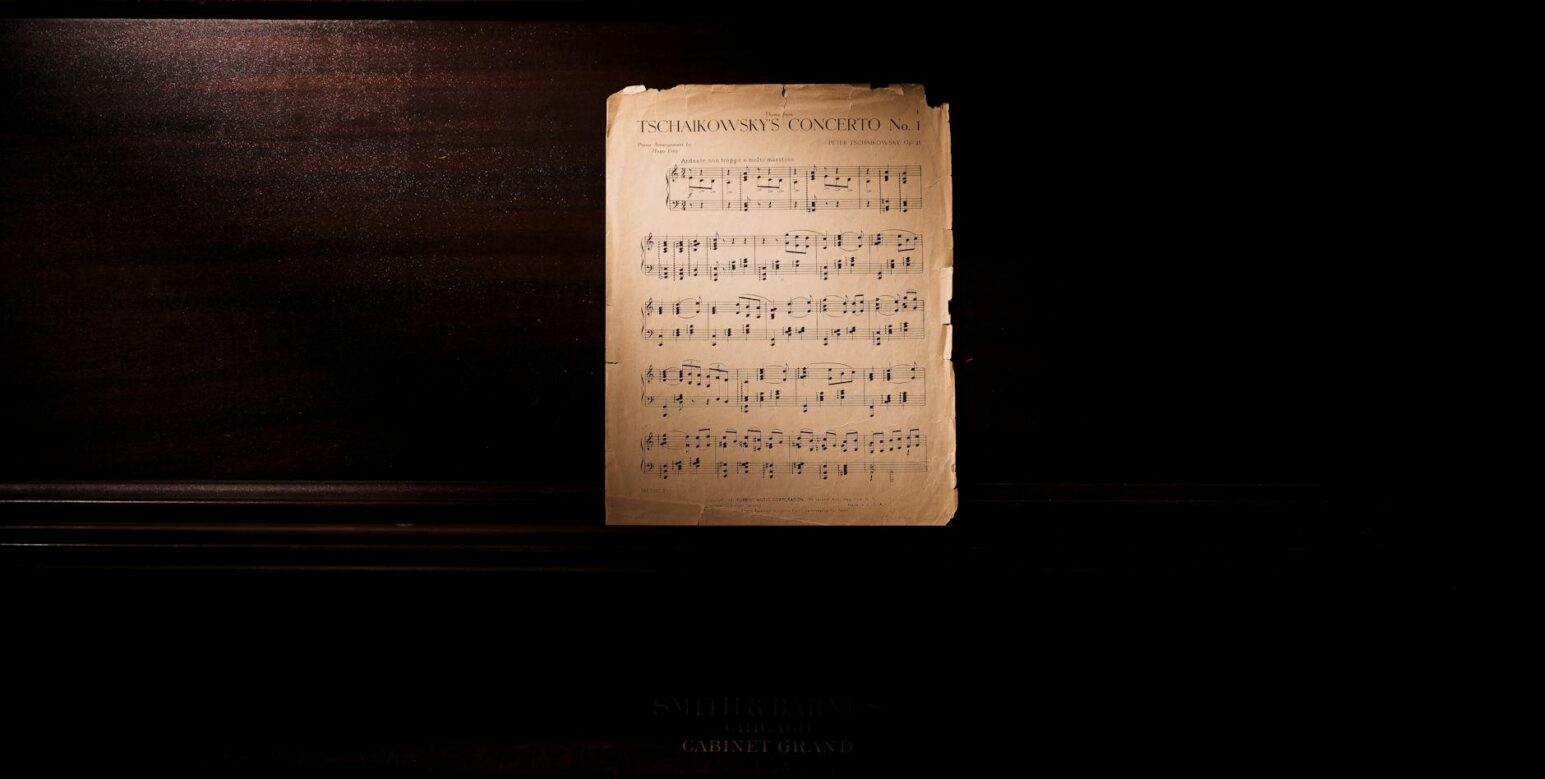 Theme from
TSCHAIKOWSKY'S CONCERTO No. 1
Piano Arrangement by
Hugo Frey
PETER TSCHAIKOWSKY Op. 23
Andante non troppo e molto maestoso
f
ROBBINS MUSIC CORPORATION,
SMITH & BARNES
CHICAGO
CABINET GRAND